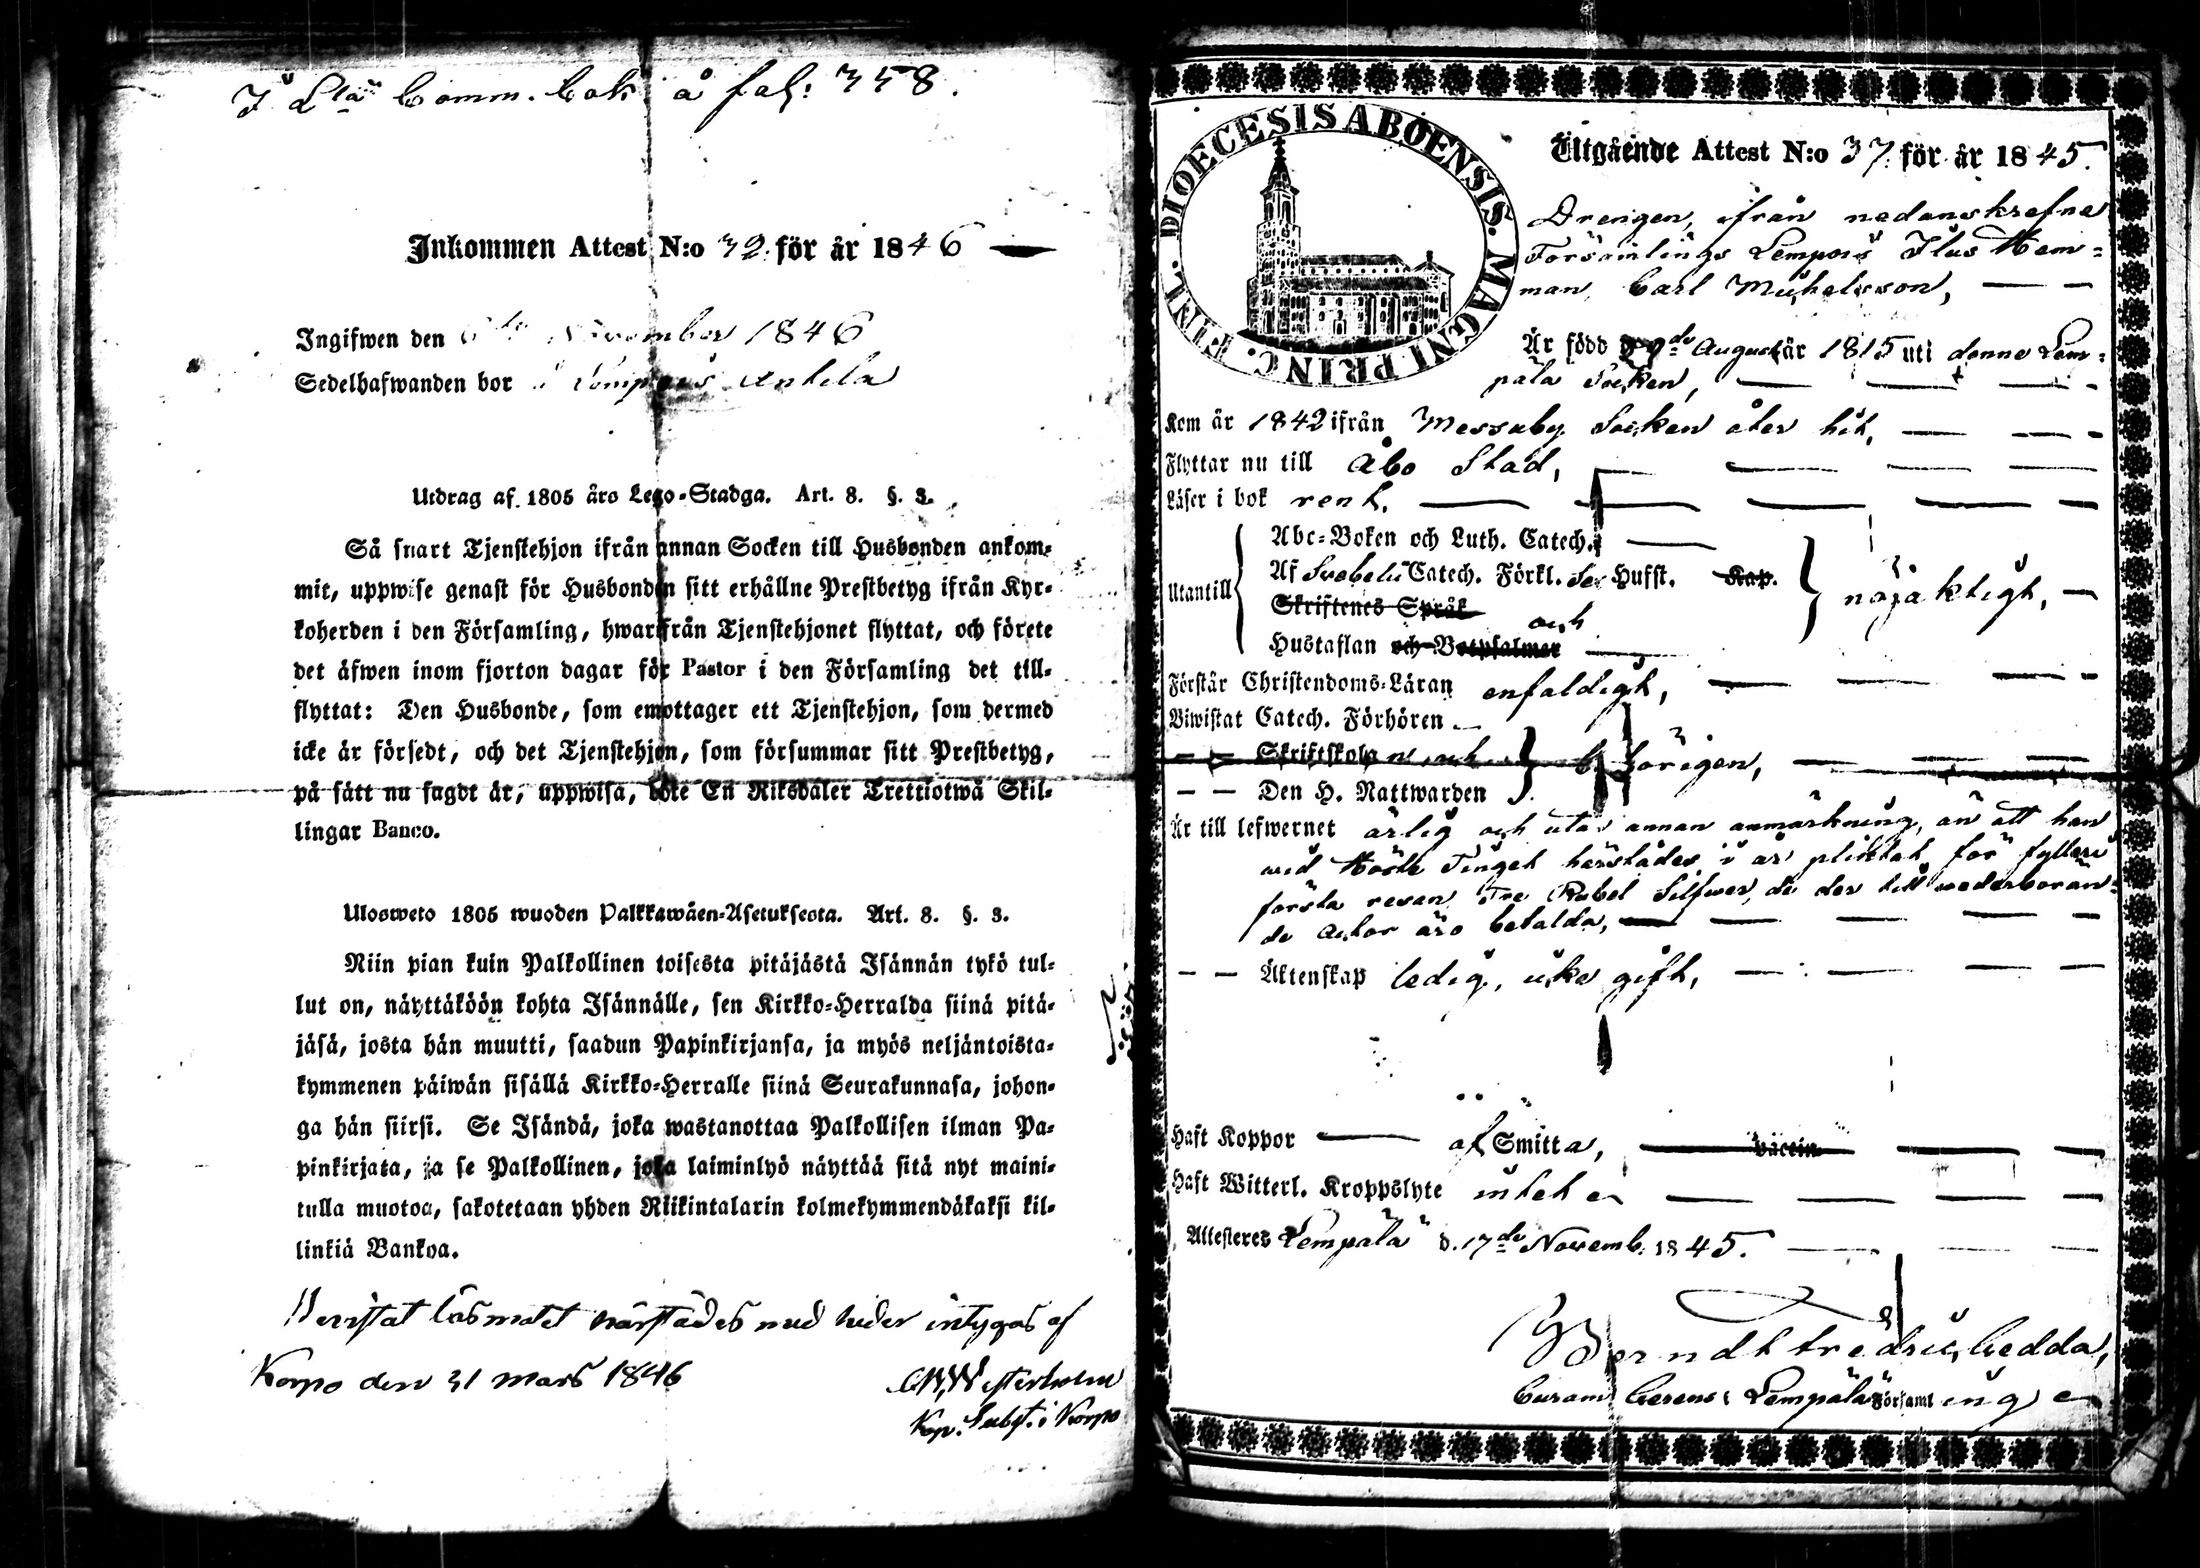 I Lla Comm. Bok å fol: 358.
Inkommen Attest N:o 32. för år 1846
Ingifwen den 6te November 1846
Sedelhafwanden bor i Lempois Anttila
Utdrag af 1805 års Lego-Stadga. Art. 8. §. 3.
Så snart Tjenstehjon ifrån annan Socken till Husbonden ankom-
mit, uppwise genast för Husbonden sitt erhållne Prestbetyg ifrån Kyr-
koherden i den Församling, hwarifrån Tjenstehjonet flyttat, och förete
det äfwen inom fjorton dagar för Pastor i den Församling det till-
flyttat: Den Husbonde, som emottager ett Tjenstehjon, som dermed
icke är försedt, och det Tjenstehjon, som försummar sitt Prestbetyg,
på sätt nu sagdt är, uppwisa, böte En Riksdaler Trettiotwå Skil-
lingar Banco.
Ulosweto 1805 wuoden Palkkawäen-Asetuksesta. Art. 8. §. 3.
Niin pian kuin Palkollinen toisesta pitäjästä Isännän tykö tul-
lut on, näyttäköön kohta Isännälle, sen Kirkko-Herralda siinä pitä-
jäsä, josta hän muutti, saadun Papinkirjansa, ja myös neljäntoista-
kymmenen päiwän sisällä Kirkko-Herralle siinä Seurakunnasa, johon-
ga hän siirsi. Se Isändä, joka wastanottaa Palkollisen ilman Pa-
pinkirjata, ja se Palkollinen, joka laiminlyö näyttää sitä nyt maini-
tulla muotoa, sakotetaan yhden Riikintalarin kolmekymmendäkaksi kil-
linkiä Bankoa.
Bevistat läsmötet härstädes med heder intygas af
Korpo den 31 Mars 1846
Westerholm
Kap. Subst. i Korpo
DIOECESIS ABOENSIS. MAGNI PRINC. FINL.
Utgående Attest N:o 37. för år 1845.
Drengen, ifrån nedanskrefne
Församlings Lempois Ilus Hem-
man, Carl Michelsson,
Är född d. de August år 1815 uti denne Lem-
pälä Socken,
Kom år 1842 ifrån Messuby Socken åter hit,
Flyttar nu till Åbo Stad,
Läser i bok rent,
Abc-Boken och Luth. Catech.
Utantill Af Svebelii Catech. Förkl. Hufst. Kap. nöjaktigt,
Skriftenes Språk
och
Hustaflan och Botpsalmer
Förstår Christendoms-Läran enfaldigt,
Biwistat Catech. Förhören
Skriftskolan och behörigen,
Den H. Nattwarden
Är till lefwernet ärlig och utan annan anmärkning, än att han
wid Höste Tinget härstädes i år plicktat för fylleri
första resan, Tre Rubel Silfwer, de der till wederböran-
de Ächor äro betalda,
Äktenskap ledig, icke gift,
Haft Koppor af Smitta, vaccin
Haft Witterl. Kroppslyte intet
Attesteres Lempälä d. 17de Novemb. 1845.
Berndt Fredric Gedda,
Curam Gerens i Lempälä Församling